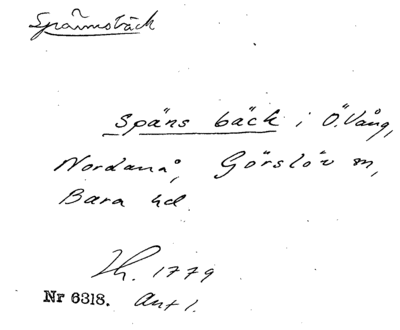 Spännsbäck
Späns bäck i Ö. Vång,
Nordanå, Görslöv m,
Bara hd
Lh. 1779
Nr 6318. Ant 1.